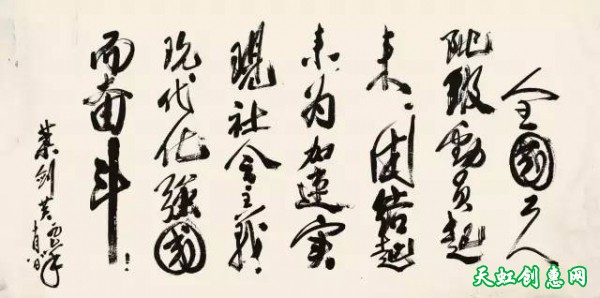 全國工人
阶级動员起
来，团结起
来，为加速实
現社会主義
现代化强國
而奋斗！
葉剑英
天虹创惠网